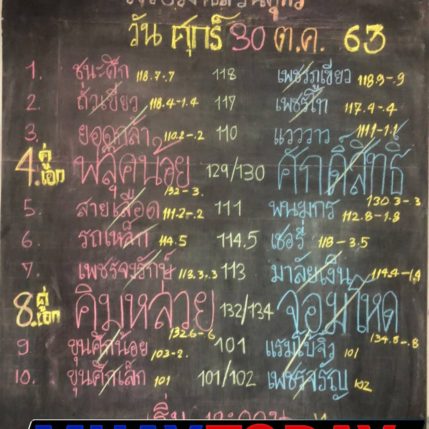 วัน ศุกร์ 30 ต.ค. 63
1. ชนะศึก 118.7-.7 118 เพชรภูเขียว 118.9-.9
2. ถั่วเขียว 118.4-1.4 117 เพชรไท 117.4-.4
3. ยอดกล้า 110.2-.2 110 แวววาว 111.1-1.1
4. คู่เอก พลิคน้อย 132-3. 129/130 ศักดิ์สิทธิ์ 130.3-3
5. สายเลือด 111.2-.2 111 พนมกร 112.8-1.8
6. รถเหล็ก 114.5 114.5 เชอรี่ 118-3.5
7. เพชรจงรักษ์ 113.3.3 113 มาลัยเงิน 114.4-1.4
8. คู่เอก คิมหล่วย 132.6-.6 132/134 จอมโหด 134.8-.8
9 ขุนศึกน้อย 103-2. 101 แรมโบ้จิ๋ว 101
10. ขุนศึกเล็ก 101 101/102 เพชรจรัญ 102